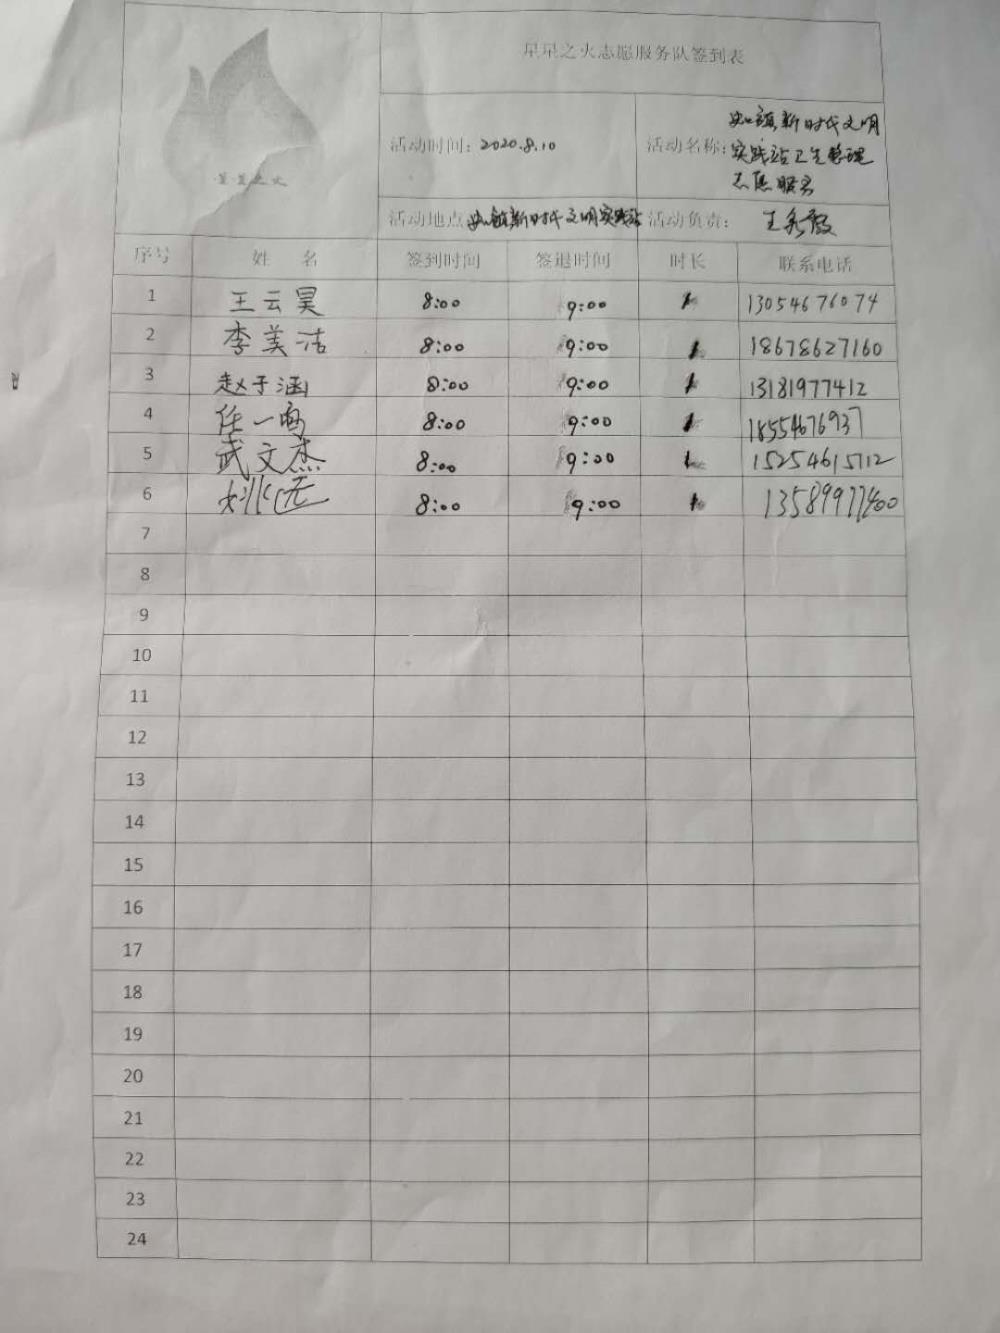 星星之火志愿服务队签到表
星星之火
活动时间：2020.8.10
活动名称：
新时代文明
实践站卫生整理
志愿服务
活动地点
新时代文明实践站
活动负责：
王秀霞
序号 姓 名 签到时间 签退时间 时长 联系电话
1 王云昊 8:00 9:00 1 13054676074
2 李美洁 8:00 9:00 1 18678627160
3 赵于涵 8:00 9:00 1 13181977412
4 任一鸣 8:00 9:00 1 18554676937
5 武文杰 8:00 9:00 1 15254615712
6 8:00 9:00 1 13589977400
7
8
9
10
11
12
13
14
15
16
17
18
19
20
21
22
23
24